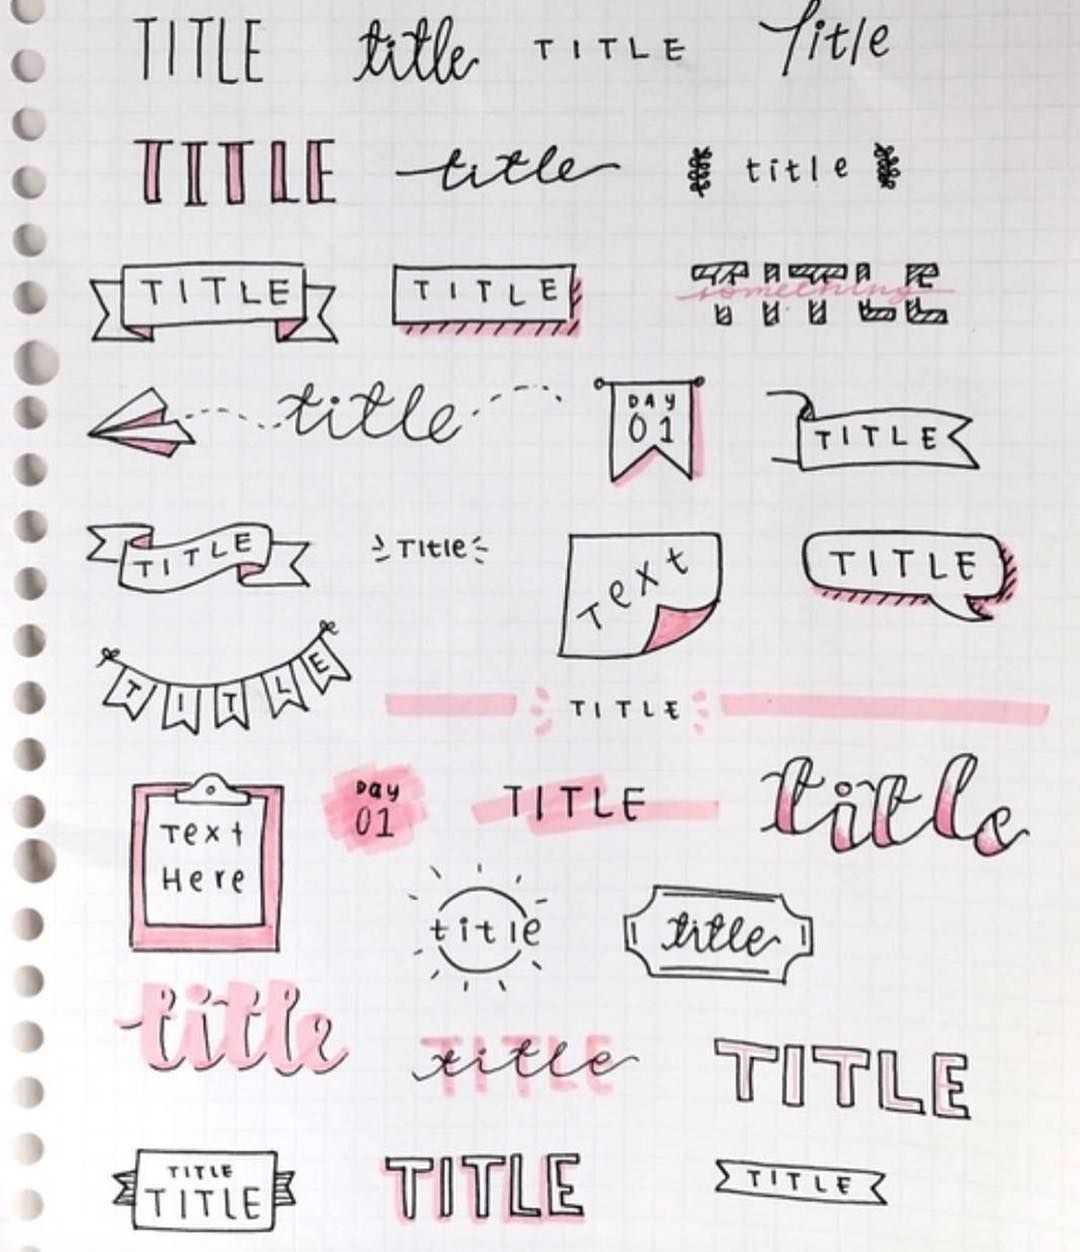 TITLE title TITLE Title
TITLE title title
TITLE TITLE TITLE
something
title DAY
01 TITLE
TITLE Title Text TITLE
TITLE TITLE
Text
Here Day
01 TITLE title
title title
title title TITLE
TITLE
TITLE TITLE TITLE